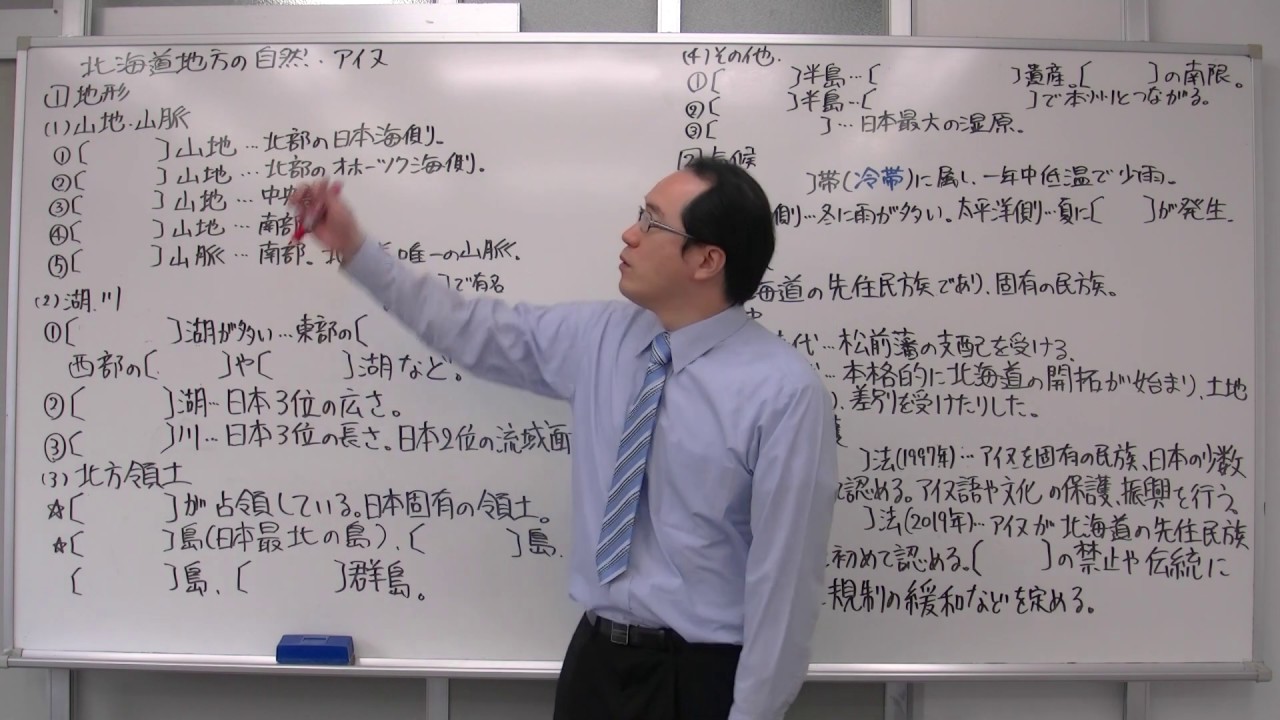 北海道地方の自然・アイヌ
1 地形
(1)山地・山脈
①[　　　]山地…北部の日本海側。
②[　　　]山地…北部のオホーツク海側。
③[　　　]山地…中央
④[　　　]山地…南部
⑤[　　　]山脈…南部。北　　唯一の山脈。
]で有名
(2)湖・川
①[　　　]湖が多い…東部の[
西部の[　　　]や[　　　]湖など。
②[　　　]湖…日本3位の広さ。
③[　　　]川…日本3位の長さ。日本2位の流域面
(3)北方領土
☆[　　　]が占領している。日本固有の領土。
☆[　　　]島(日本最北の島)、[　　　]島、
[　　　]島、[　　　]群島。
(4)その他
①[　　　]半島…[　　　]遺産。[　　　]の南限。
②[　　　]半島…[　　　]で本州とつながる。
③[　　　]…日本最大の湿原。
2 気候
]帯(冷帯)に属し、一年中低温で少雨。
側…冬に雨が多い。太平洋側…夏に[　　　]が発生。
海道の先住民族であり、固有の民族。
代…松前藩の支配を受ける。
…本格的に北海道の開拓が始まり、土地
、差別を受けたりした。
]法(1997年)…アイヌを固有の民族、日本の少数
認める。アイヌ語や文化の保護、振興を行う。
]法(2019年)…アイヌが北海道の先住民族
初めて認める。[　　　]の禁止や伝統に
規制の緩和などを定める。